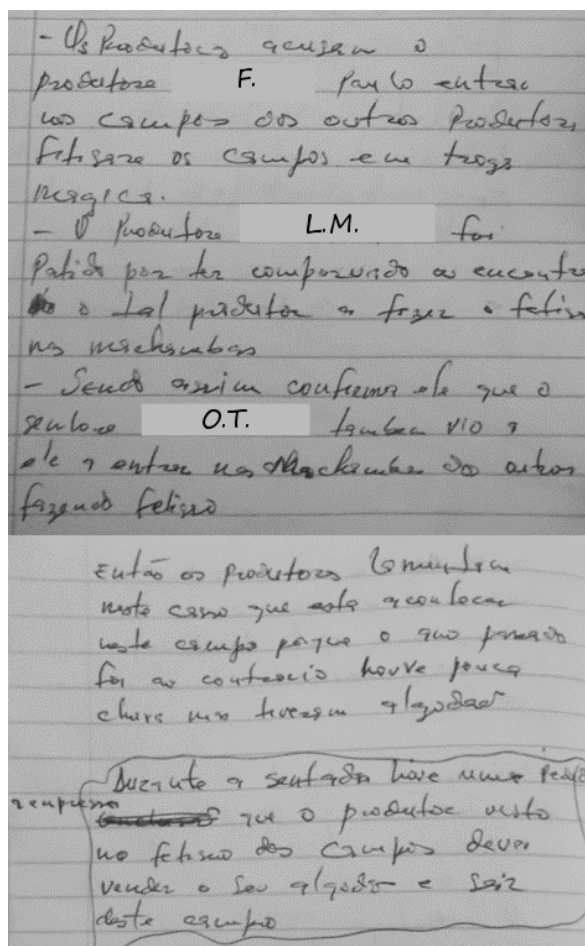 - Os Produtores acusam o
produtore F. Paulo entrar
nos campos dos outros Produtores
fetisare os campos em troga
magica.
- O Produtore L.M. foi
Patido por ter comparundo ao encontro
o tal produtor a fazer o fetiso
nas machambas
- Sendo assim confirma ele que o
senhore O.T. tambem vio a
ele a entrar nas Machamba do outros
fazendo fetisso
Então os produtores lamentam
neste casso que esta acontecer
neste campo porque o ano passado
foi ao contracio houve pouca
chuva mas tiveram algodão
Durante a sentada hove uma
a empresa que o produtor visto
no fetismo dos campos dever
vender o seu algodo e sair
deste campo